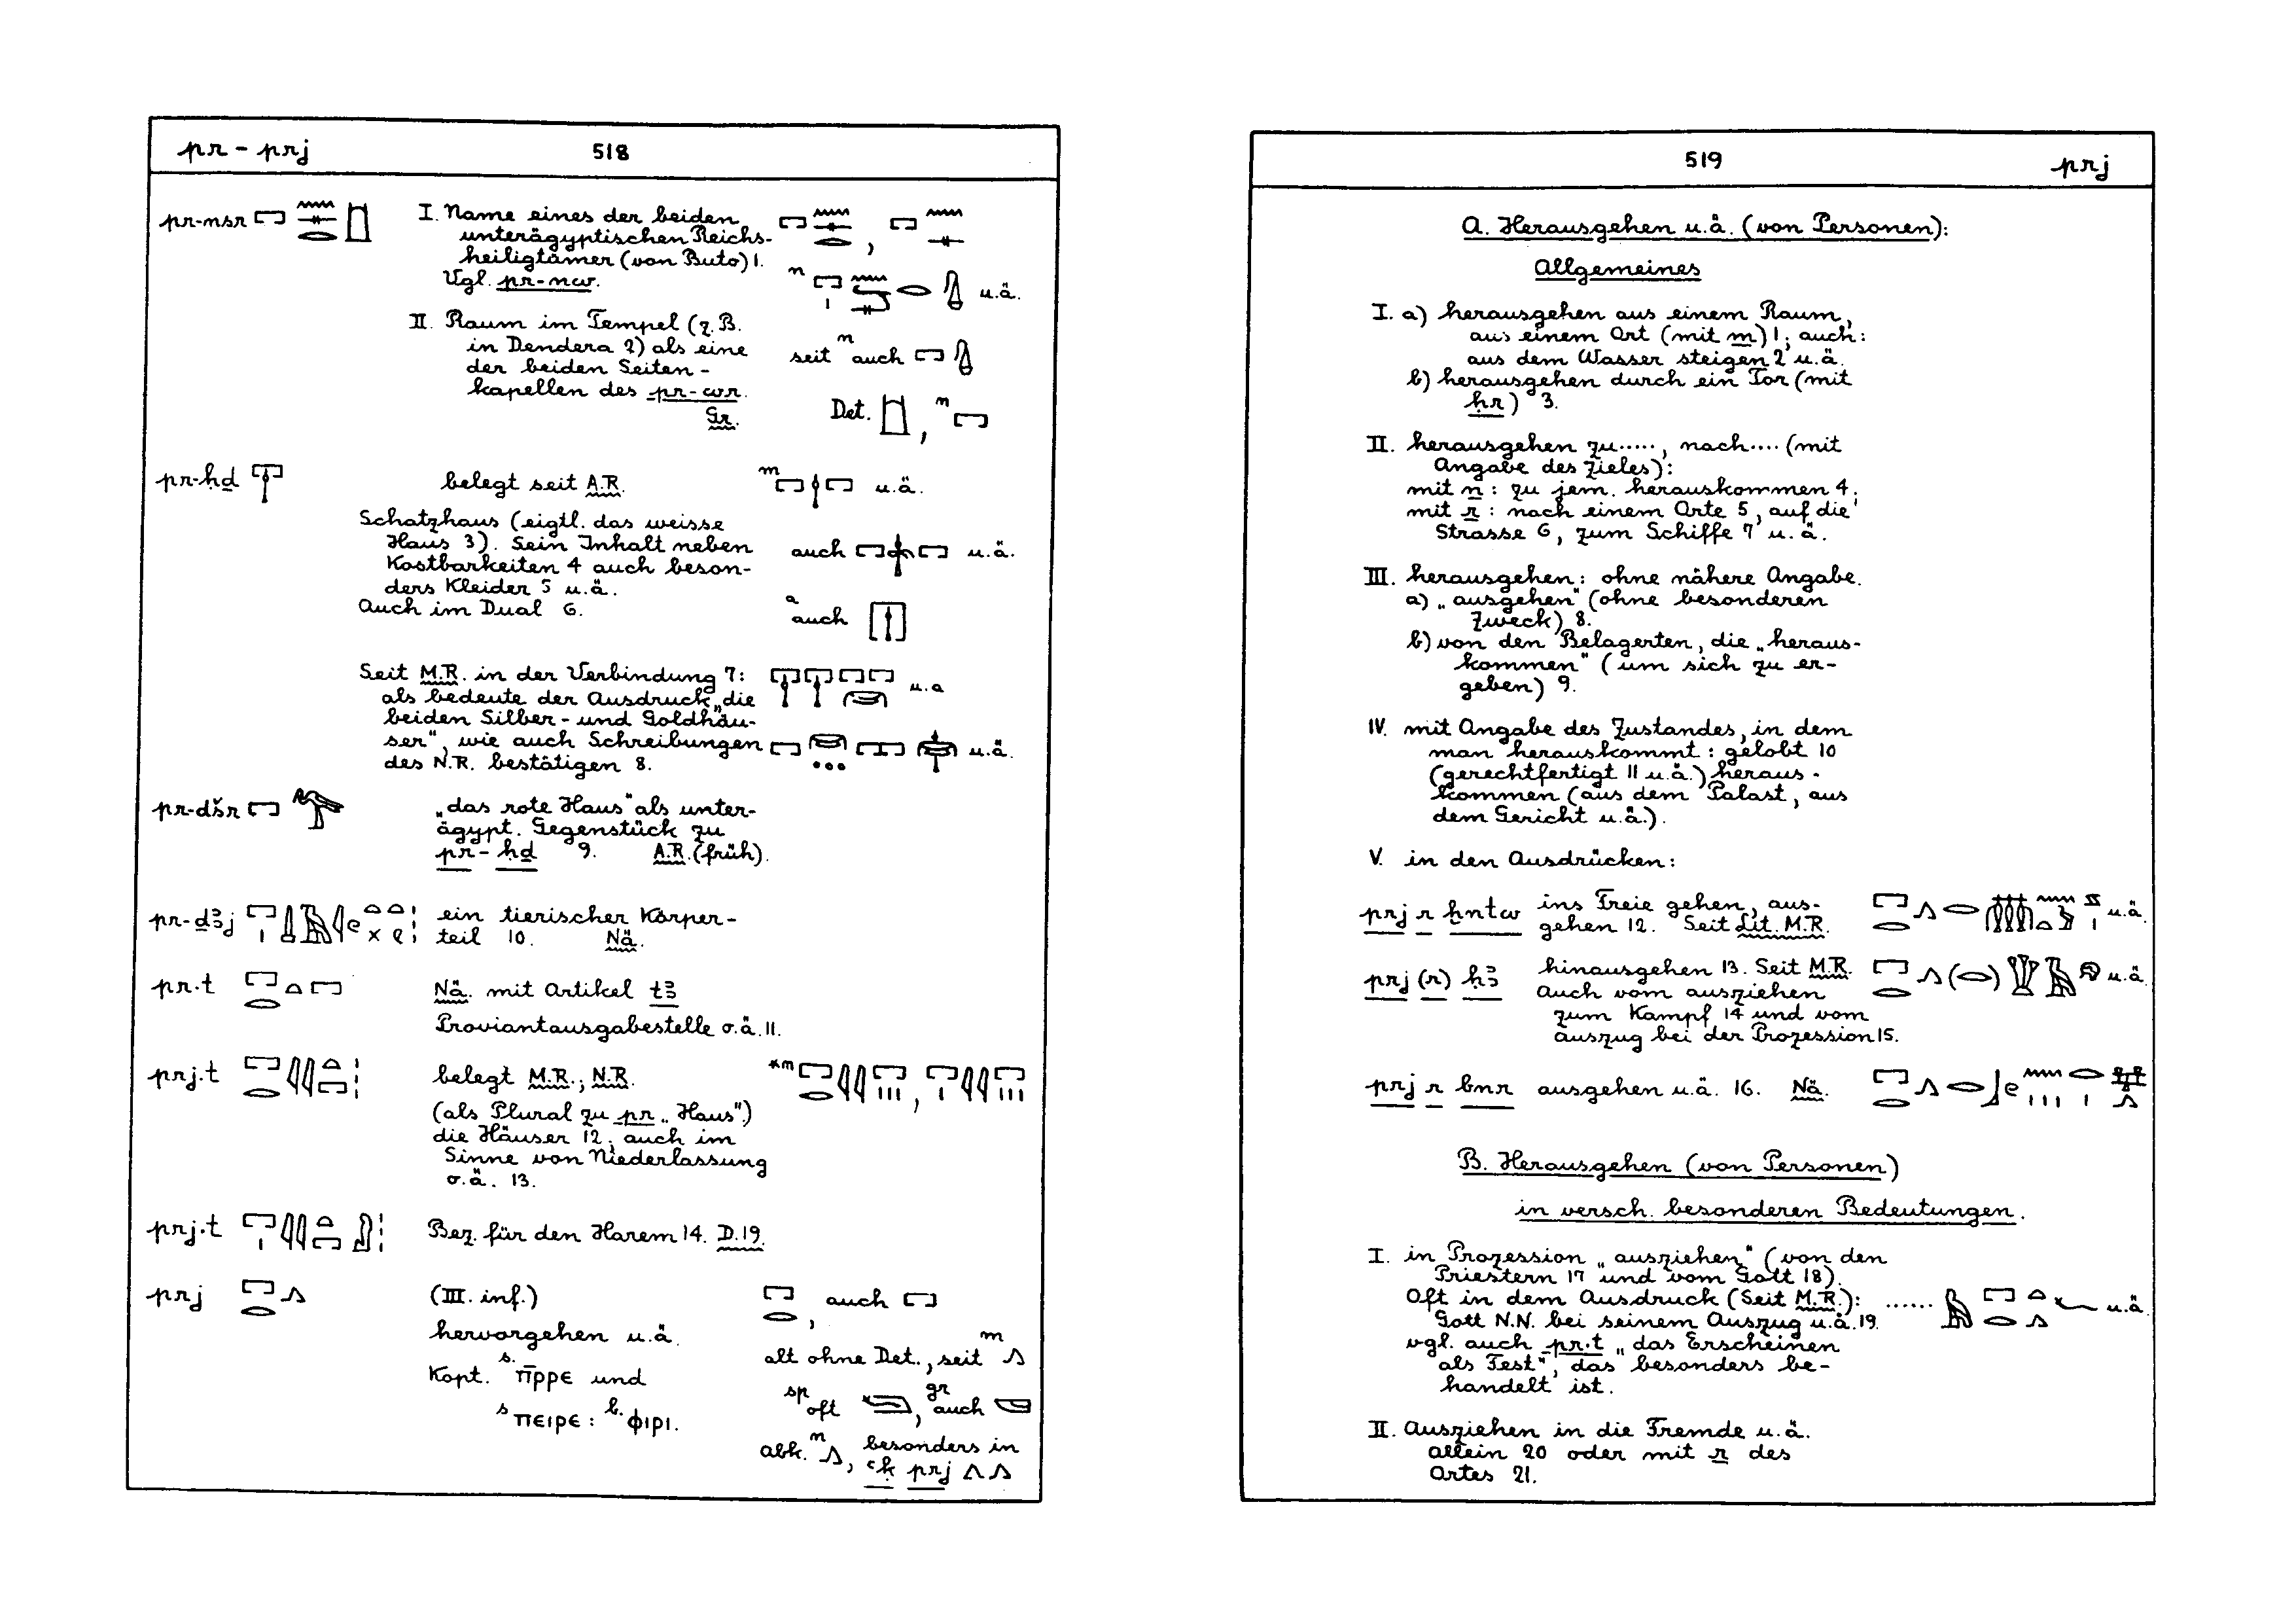 pr - prj 518
pr-nsr I. Name eines der beiden
unterägyptischen Reichs-
heiligtümer (von Buto) 1.
Vgl. pr-nw.
n u.ä.
II. Raum im Tempel (z.B.
in Dendera 2) als eine
der beiden Seiten-
kapellen des pr-wr.
Gr.
seit n auch
Det. , n
pr-ḥḏ belegt seit A.R. m u.ä.
Schatzhaus (eigtl. das weisse
Haus 3). Sein Inhalt neben
Kostbarkeiten 4 auch beson-
ders Kleider 5 u.ä.
Auch im Dual 6.
auch u.ä.
a auch
Seit M.R. in der Verbindung 7:
als bedeute der Ausdruck „die
beiden Silber- und Goldhäu-
ser“, wie auch Schreibungen
des N.R. bestätigen 8.
u.a
u.ä.
pr-dšr „das rote Haus“ als unter-
ägypt. Gegenstück zu
pr-ḥḏ 9. A.R. (früh).
pr-ḏꜣj ein tierischer Körper-
teil 10. Nä.
pr.t Nä. mit Artikel tꜣ
Proviantausgabestelle o.ä. 11.
prj.t belegt M.R.; N.R. *m
(als Plural zu pr „Haus“)
die Häuser 12; auch im
Sinne von Niederlassung
o.ä. 13.
prj.t Bez. für den Harem 14. D.19.
prj (III. inf.) , auch
hervorgehen u.ä.
alt ohne Det., seit m
Kopt. s. ⲡ̅ⲣⲣⲉ und
s ⲡⲉⲓⲣⲉ : b. ⲫⲓⲣⲓ.
sp oft , gr auch
abk. n , besonders in
ꜥḳ prj
519 prj
A. Herausgehen u.ä. (von Personen):
Allgemeines
I. a) herausgehen aus einem Raum,
aus einem Ort (mit m) 1; auch:
aus dem Wasser steigen 2 u.ä.
b) herausgehen durch ein Tor (mit
ḥr) 3.
II. herausgehen zu....., nach.... (mit
Angabe des Zieles):
mit n : zu jem. herauskommen 4;
mit r : nach einem Orte 5, auf die
Strasse 6, zum Schiffe 7 u.ä.
III. herausgehen: ohne nähere Angabe.
a) „ausgehen“ (ohne besonderen
Zweck) 8.
b) von den Belagerten, die „heraus-
kommen“ (um sich zu er-
geben) 9.
IV. mit Angabe des Zustandes, in dem
man herauskommt: gelobt 10
(gerechtfertigt 11 u.ä.) heraus-
kommen (aus dem Palast, aus
dem Gericht u.ä.).
V. in den Ausdrücken:
prj r ḫntw ins Freie gehen, aus-
gehen 12. Seit Lit. M.R. u.ä.
prj (r) ḥꜣ hinausgehen 13. Seit M.R. ( ) u.ä.
Auch vom ausziehen
zum Kampf 14 und vom
Auszug bei der Prozession 15.
prj r bnr ausgehen u.ä. 16. Nä.
B. Herausgehen (von Personen)
in versch. besonderen Bedeutungen.
I. in Prozession „ausziehen“ (von den
Priestern 17 und vom Gott 18).
Oft in dem Ausdruck (Seit M.R.): ...... u.ä.
Gott N.N. bei seinem Auszug u.ä. 19.
vgl. auch pr.t „das Erscheinen
als Fest“, das besonders be-
handelt ist.
II. Ausziehen in die Fremde u.ä.
allein 20 oder mit r des
Ortes 21.